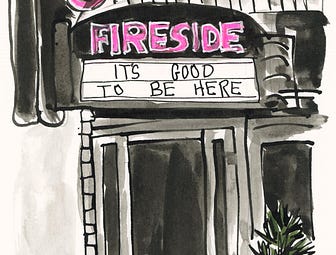 FIRESIDE
ITS GOOD
TO BE HERE